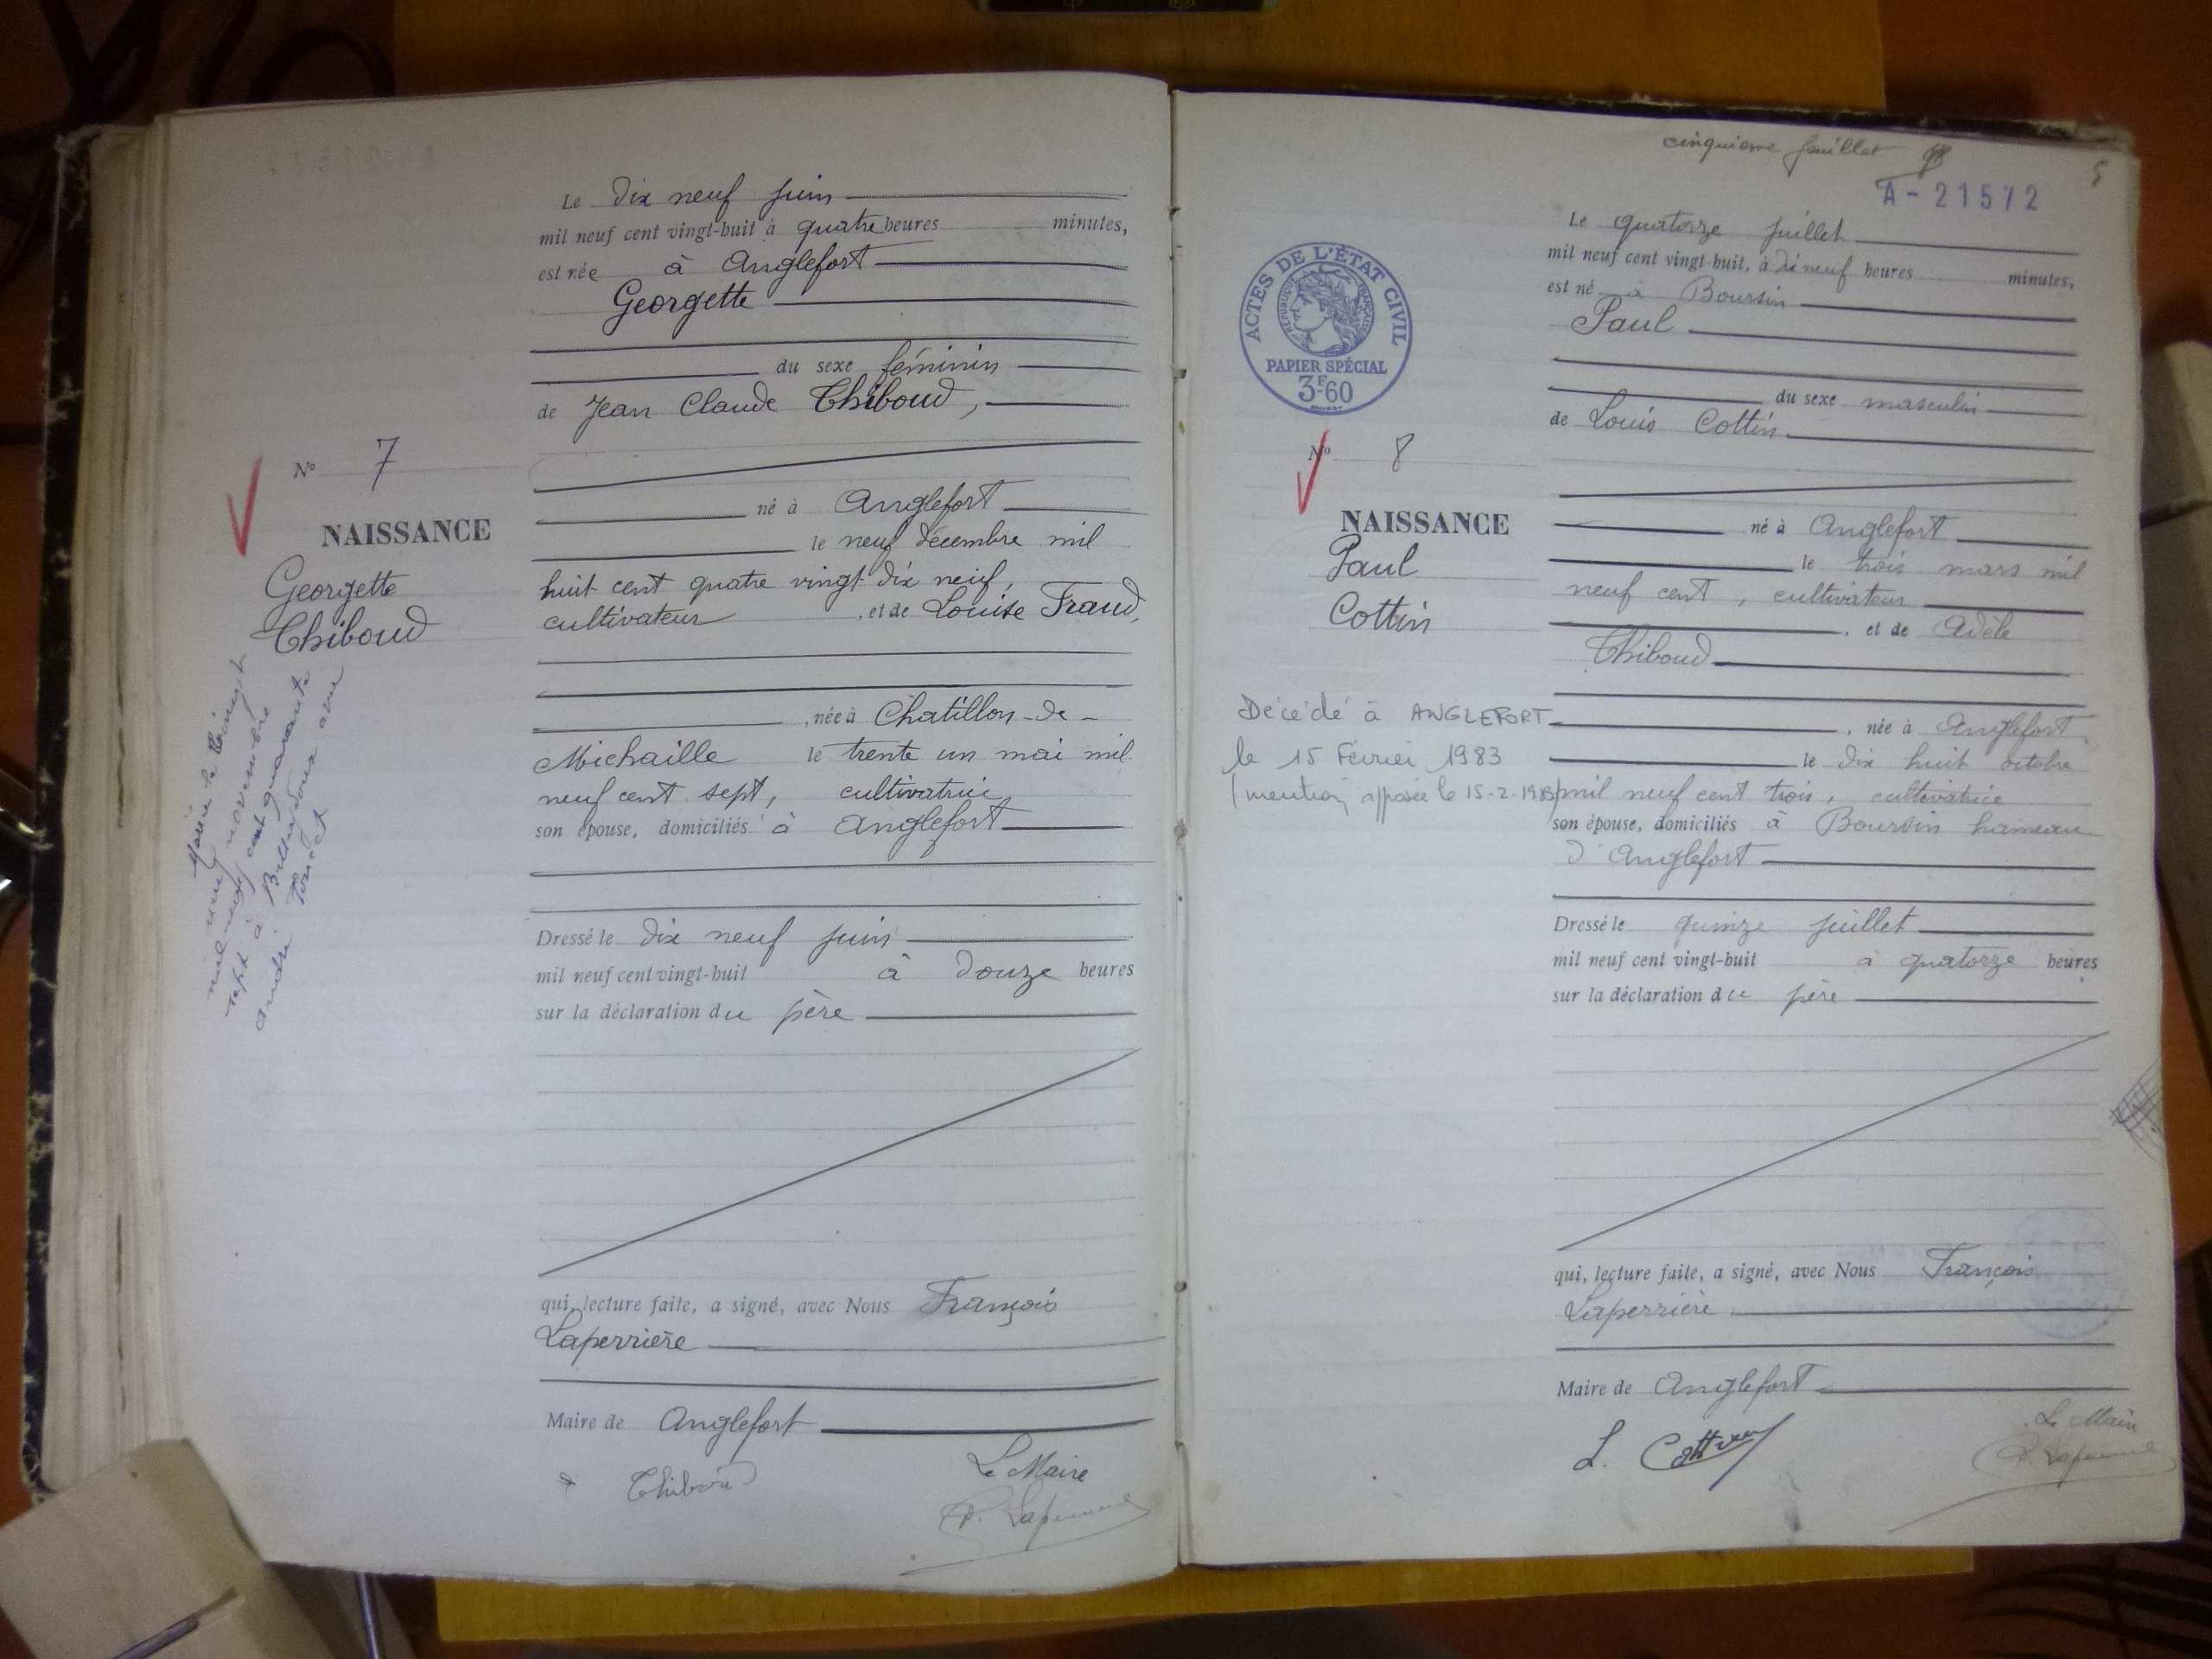 Le dix neuf juin
mil neuf cent vingt-huit à quatre heures minutes,
est née à Anglefort
Georgette
du sexe féminin
de Jean Claude Thiboud,
né à Anglefort
le neuf décembre mil
huit cent quatre vingt dix neuf,
cultivateur , et de Louise Fraud,
, née à Chatillon-de-
Michaille le trente un mai mil
neuf cent sept, cultivatrice
son épouse, domiciliés à Anglefort
Dressé le dix neuf juin
mil neuf cent vingt-huit à douze heures
sur la déclaration du père
qui, lecture faite, a signé, avec Nous François
Laperrière
Maire de Anglefort
Thiboud
Le Maire
No 7
NAISSANCE
Georgette
Thiboud
novembre
mil neuf cent quarante
sept à
André
cinquième feuillet
5
A-21572
ACTES DE L'ÉTAT CIVIL
RÉPUBLIQUE FRANÇAISE
PAPIER SPÉCIAL
3F60
No 8
NAISSANCE
Paul
Cottin
Décédé à ANGLEFORT
le 15 Février 1983
(mention apposée le 15-2-1983)
Le quatorze juillet
mil neuf cent vingt-huit, à dineuf heures minutes,
est né à Boursin
Paul
du sexe masculin
de Louis Cottin
né à Anglefort
le trois mars mil
neuf cent, cultivateur
, et de Adèle
Thiboud
, née à Anglefort,
le dix huit octobre
mil neuf cent trois, cultivatrice
son épouse, domiciliés à Boursin hameau
d'Anglefort
Dressé le quinze juillet
mil neuf cent vingt-huit à quatorze heures
sur la déclaration du père
qui, lecture faite, a signé, avec Nous François
Laperrière
Maire de Anglefort
L. Cottin
Le Maire